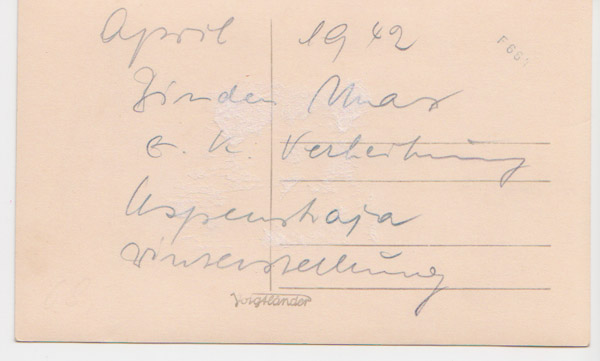 April 1942
F661
Zinden Max
E. K. Verleihung
Uspenskaja
Winterstellung
Voigtländer